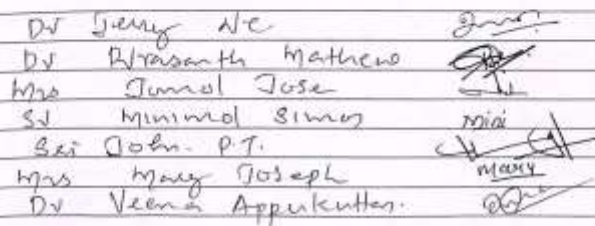 Dr Jerry
Dr Prasanth Mathew
Mrs Jumol Jose
Sr Minimol Simon Mini
Sri John. P.T.
Mrs Mary Joseph Mary
Dr Veena Appukuttan.